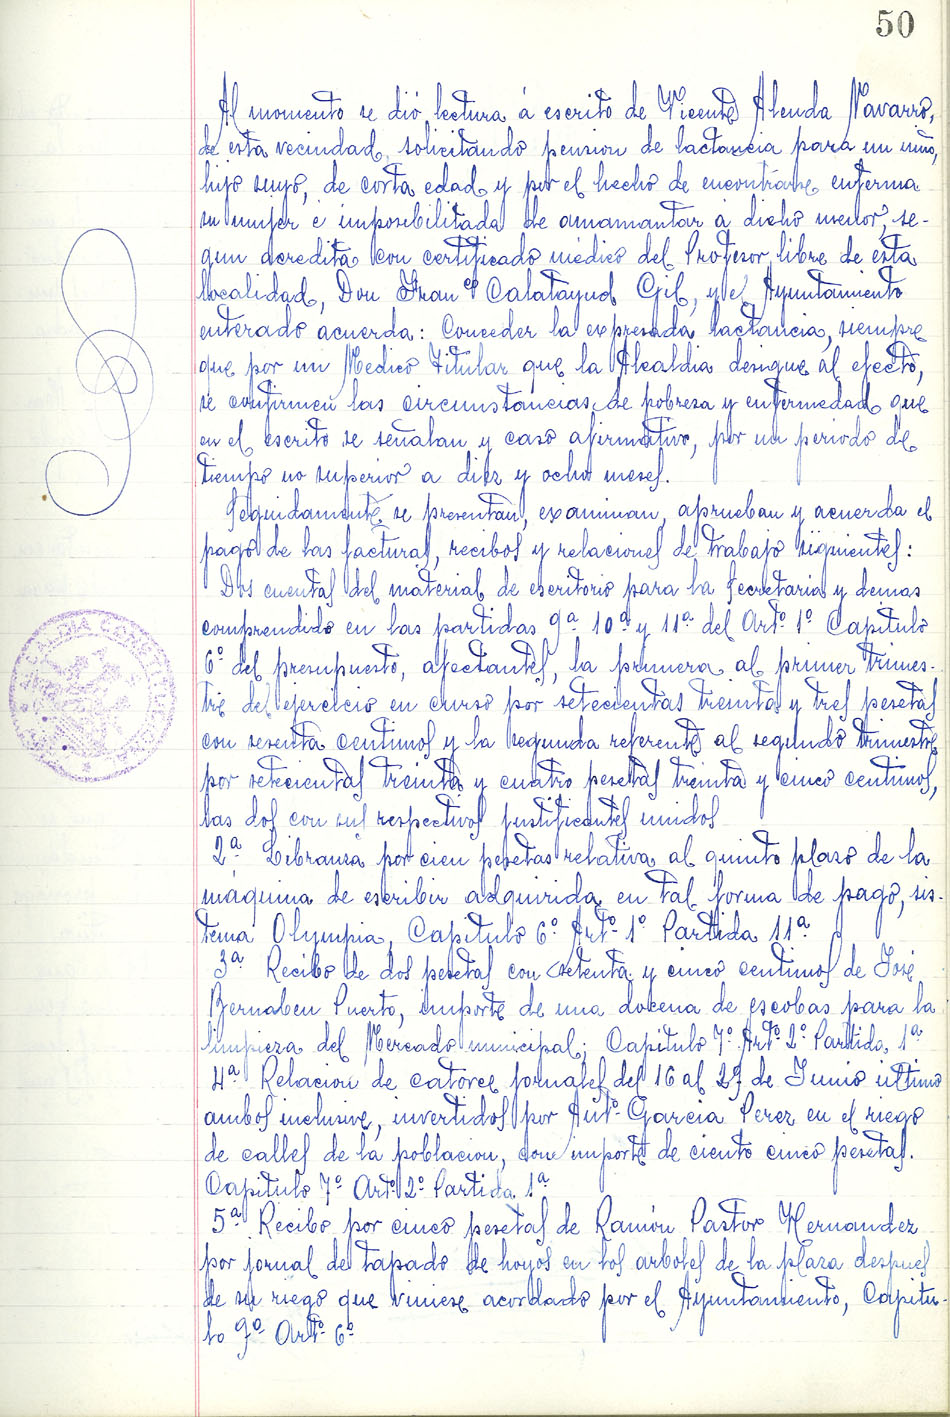 50
Al momento se dió lectura á escrito de Vicente Abenda Navarro,
de esta vecindad, solicitando pension de lactancia para un niño,
hijo suyo, de corta edad y por el hecho de encontrarse enferma
su mujer é imposibilitada de amamantar á dicho menor, se-
gun acredita con certificado médico del Profesor libre de esta
localidad, Don Franco Calatayud Gil, y el Ayuntamiento
enterado acuerda: Conceder la expresada lactancia, siempre
que por un Medico Titular que la Alcaldia designe al efecto,
se confirmen las circunstancias de pobreza y enfermedad que
en el escrito se señalan y caso afirmativo, por un periodo de
tiempo no superior a diez y ocho meses.
Seguidamente se presentan, examinan, aprueban y acuerda el
pago de las facturas, recibos y relaciones de trabajo siguientes:
Dos cuentas del material de escritorio para la Secretaria y demas
comprendido en las partidas 9ª 10ª y 11ª del Artº 1º Capitulo
6º del presupuesto, afectantes, la primera al primer trimes-
tre del ejercicio en curso por setecientas treinta y tres pesetas
con sesenta centimos y la segunda referente al segundo trimestre
por setecientas treinta y cuatro pesetas treinta y cinco centimos,
las dos con sus respectivos justificantes unidos
2ª Libranza por cien pesetas relativa al quinto plazo de la
máquina de escribir adquirida en tal forma de pago, sis-
tema Olympia, Capitulo 6º Artº 1º Partida 11ª
3ª Recibo de dos pesetas con setenta y cinco centimos de José
Bernabeu Puerto, importe de una docena de escobas para la
limpieza del Mercado municipal; Capitulo 7º Artº 2º Partida 1ª
4ª Relacion de catorce jornales del 16 al 29 de Junio ultimo
ambos inclusive, invertidos por Antº Garcia Perez en el riego
de calles de la poblacion, con importe de ciento cinco pesetas.
Capitulo 7º Artº 2º Partida 1ª
5ª Recibo por cinco pesetas de Ramón Pastor Hernandez
por jornal de tapado de hoyos en los arboles de la plaza despues
de su riego que viniese acordado por el Ayuntamiento, Capitu-
lo 9º Artº 6º